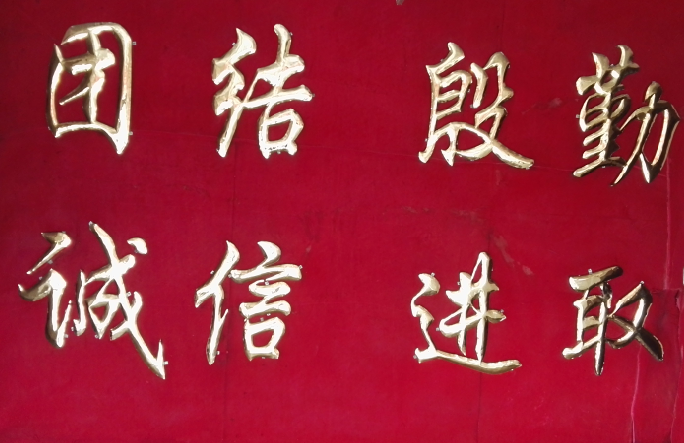 团结 殷勤
诚信 进取